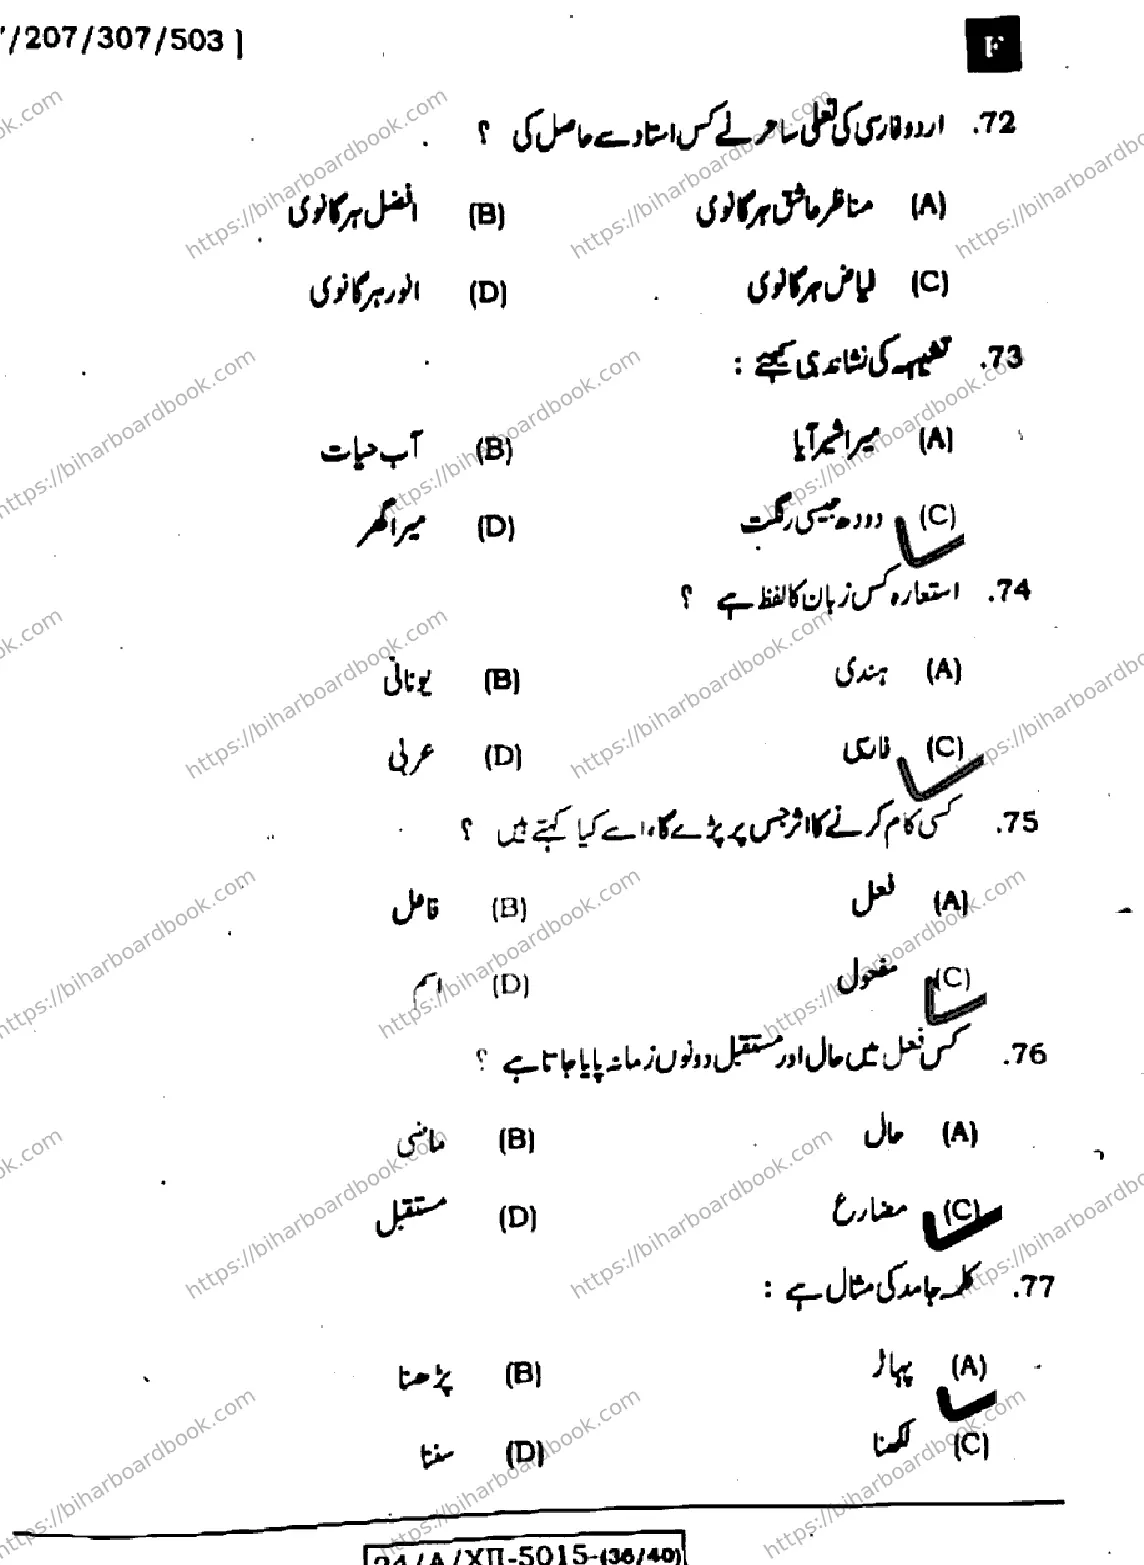 /207/307/503 ]
F
72. اردو فارسی کی تعلیم ساحر نے کس استاد سے حاصل کی ؟
(A) مناظر عاشق ہرگانوی (B) افضل ہرگانوی
(C) فیاض ہرگانوی (D) انور ہرگانوی
73. تشبیہہ کی نشاندہی کیجئے :
(A) میرا شیر آیا (B) آب حیات
(C) دودھ جیسی رنگت (D) میرا گھر
74. استعارہ کس زبان کا لفظ ہے ؟
(A) ہندی (B) یونانی
(C) فارسی (D) عربی
75. کسی کام کرنے کا اثر جس پر پڑے گا، اسے کیا کہتے ہیں ؟
(A) فعل (B) فاعل
(C) مفعول (D) اسم
76. کس فعل میں حال اور مستقبل دونوں زمانہ پایا جاتا ہے ؟
(A) حال (B) ماضی
(C) مضارع (D) مستقبل
77. کلمہ جامد کی مثال ہے :
(A) پہاڑ (B) پڑھنا
(C) لکھنا (D) سننا
24/A/XII-5015-(36/40)
https://biharboardbook.com